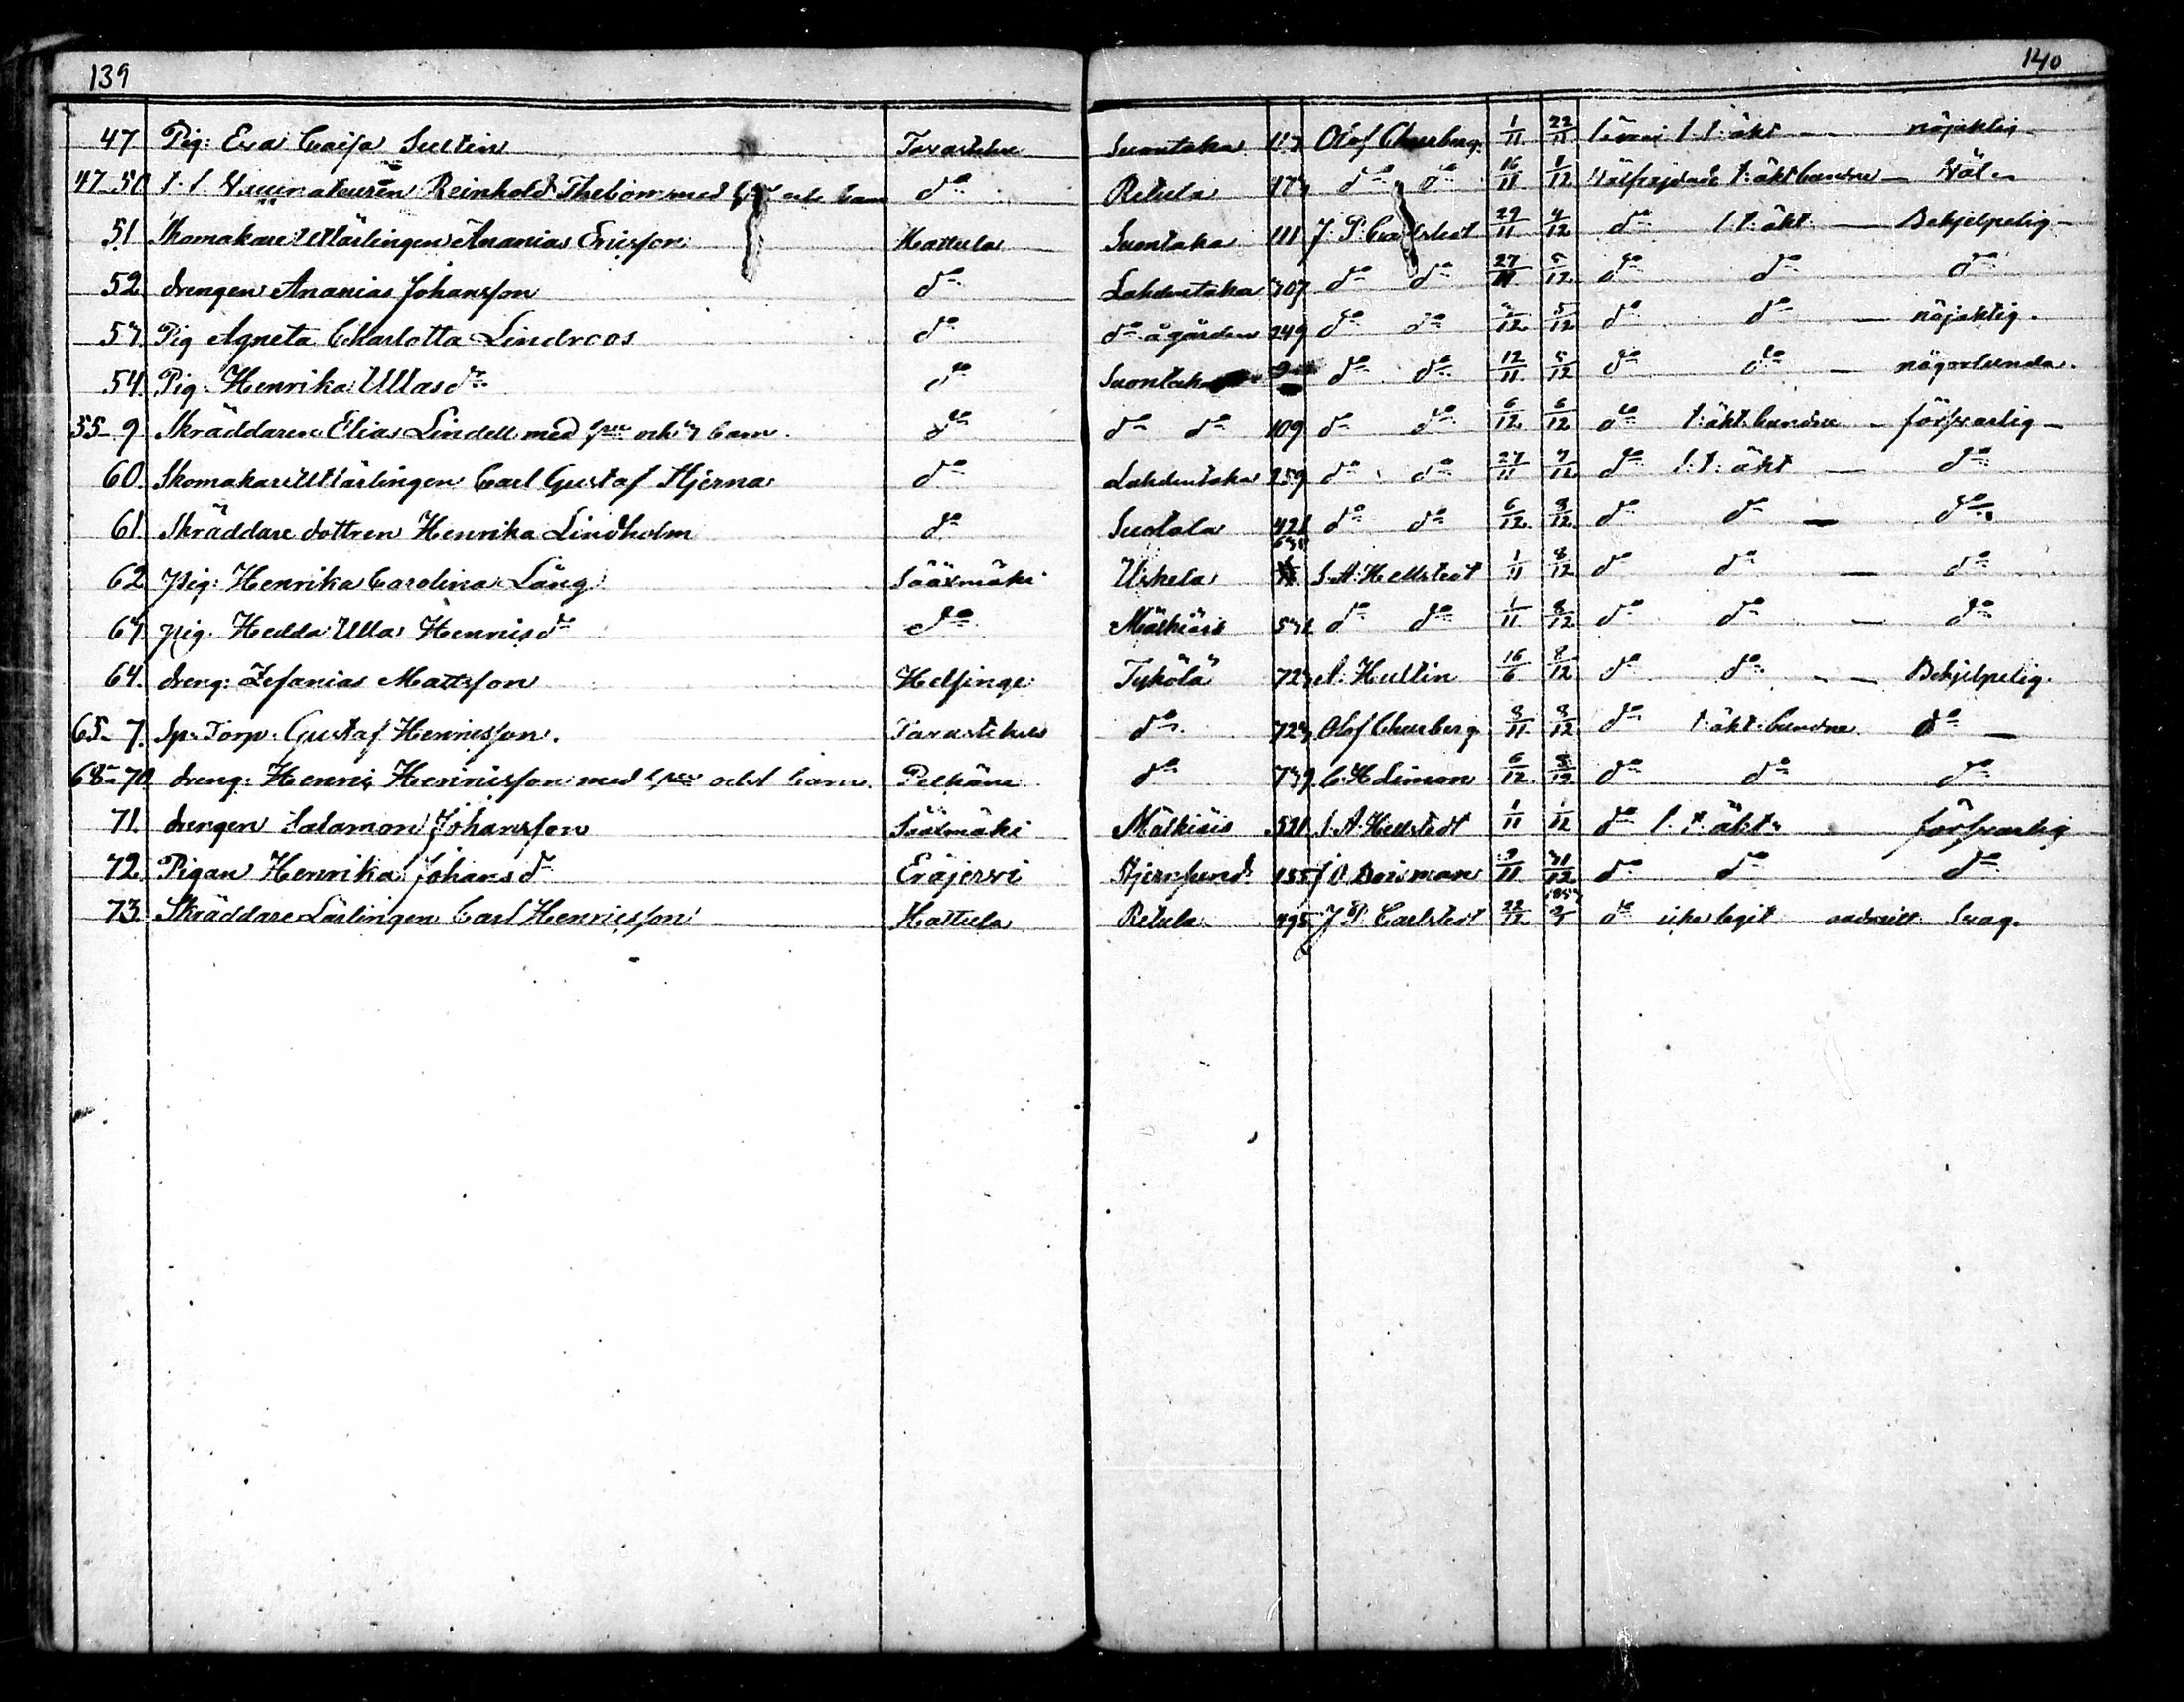 139 140
47 Pig: Eva Caisa Sultin Tavastehus Suontaka 117 Olof Churberg 1/11 22/11 t. äkt — nöjaktig
47-50 Reinhold Thebom med och barn do Retula do do 16/11 1/12 Välfrejdade t: äkt: bundne — Väl
51 Skomakare Lärlingen Ananias Ericsson Hattula Suontaka 111 J. P. Carlstedt 29/11 4/12 do l: t: äkt — Behjelpelig —
52 drengen Ananias Johansson do Lahdentaka 307 do do 27/11 5/12 do do do
53. Pig Agneta Charlotta Lindroos do do ågården 249 do do 2/12 5/12 do do — nöjaktig.
54. Pig: Henrika Ullasdr do Suontaka do do 12/11 5/12 do do — någorlunda.
55-9 Skräddaren Elias Lindell med och 3 barn. do do do 109 do do 6/12 6/12 do t: äkt: bundne — försvarlig —
60. Skomakare Lärlingen Carl Gustaf Stjerna do Lahdentaka 259 do do 27/11 7/12 do l: t: äkt — do
61. Skräddare dottren Henrika Lindholm do Suotala 421 do do 6/12 8/12 do do — do
62 Pig: Henrika Carolina Lång Sääxmäki Uskela S. A. Hellstedt 1/11 8/12 do do — do
63. Pig. Hedda Ulla Henricsdr do Mälkiäis 531 do do 1/11 8/12 do do — do
64. dreng: Zefanias Mattsson Helsinge Tykölä 723 A. Hultin 16/6 8/12 do do — — Behjelpelig.
65-7. Sp. Torp. Gustaf Henricsson. Tavastehus do 723 Olof Churberg 8/11 8/12 do t: äkt: bundne do —
68-70 dreng: Henric Henricsson med och 1 barn. Pelkäne do 739. C. H. Limon 6/12 8/12 do do do
71. drengen Salamon Johansson Sääxmäki Mälkiäis 521 S. A. Hellstedt 1/11 1/12 do l. t. äkt försvarlig
72. Pigan Henrika Johansdr Eräjervi Stjernsund 155 J. O. Boisman 9/11 31/12 do do do
73. Skräddare Lärlingen Carl Henricsson Hattula Retula 495 J. P. Carlstedt 22/12 do icke begit Svag.